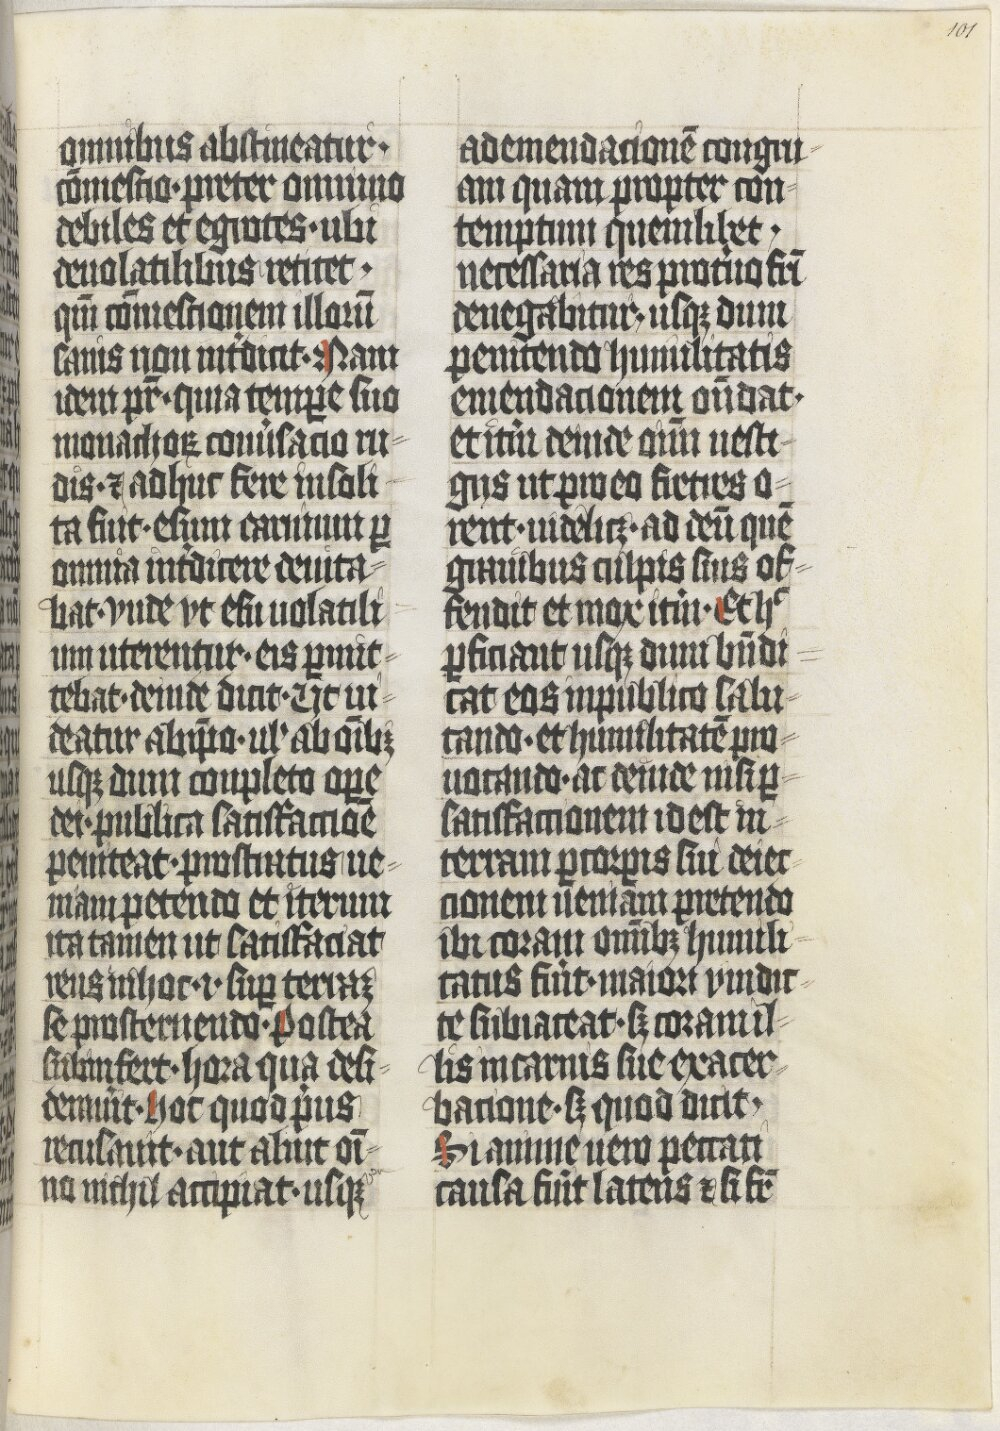 101
omnibus abstineatur·
cōmestio· preter omnino
debiles et egrotes· ubi
deuolatilibus retitet·
qm̄ cōmestionem illorū
sanis non int̾dicit· Nam
idem pr̄· quia temꝑe suo
monachoꝝ conu̾sacio ru=
dis· ⁊ adhuc fere insoli=
ta fuit· esum carnium ꝑ
omnia int̾dicere deuita=
bat· vnde vt esu uolatili
um uterentur· eis ꝑmit=
tebat· deinde dicit· Ut ui=
deatur abip̄o· ul' ab oīb;
usq; dum conpleto oꝑe
dei· publica satisfactiōe
peniteat· prostratus ue=
niam petendo et iterum
ita tamen ut satisfaciat
reus inhoc· i· suꝑ terra;
se prosternendo· Postea
subinfert· hora qua desi=
derauit· hoc quod p̾us
recusauit· aut aliut oī=
no nichil accipiat· usq;
ademendacionē congru=
am quam propter con=
temptum quemlibet·
necessaria res procuo frī
denegabitur· usq; dum
penitendo humilitatis
emendacionem on̄dat·
et it̾m deinde om̄ uesti=
gijs ut pro eo fr̄etres o=
rent· uidelic;· ad deū quē
grauibus culpis suis of=
fendit et mox it̾m· Et hͨ
ꝑficiant usq; dum bn̄di=
cat eos inpublico salu=
tando· et humilitatē pro=
uocando· ac deinde nisi ꝑ=
satisfactionem id est in=
terram ꝓcorꝑis sui deiec=
cionem ueniam pretendo
ibi coram omīb; humili=
tatus fu̾it· maiori vindic=
te subiaceat· s; coram il=
lis incarnis sue exacer=
bacione· s; quod dicit·
Si anime uero peccati
causa fu̾it latens ⁊ si fr̄